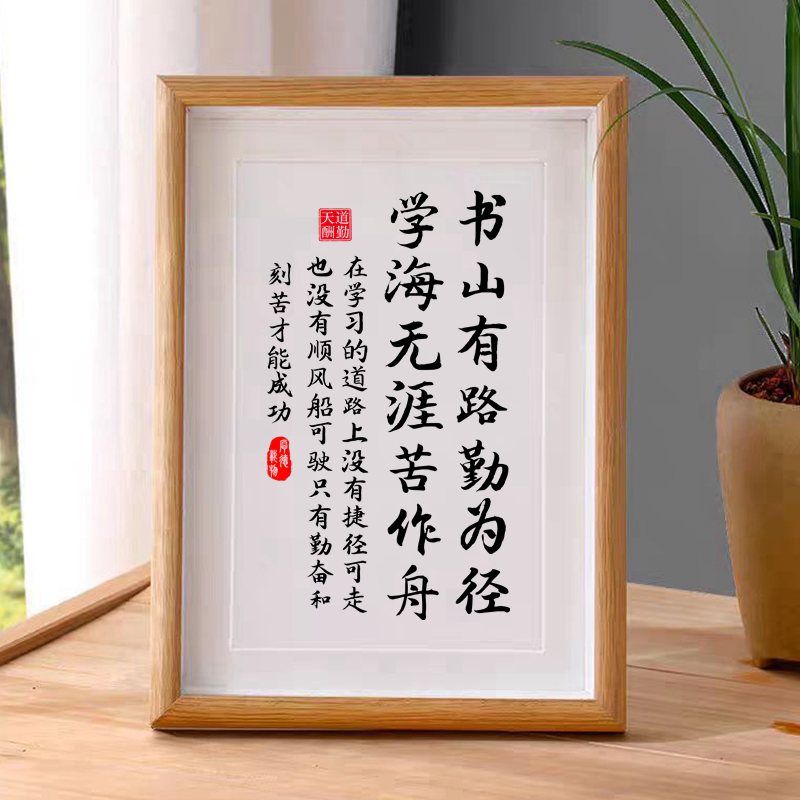 书山有路勤为径
学海无涯苦作舟
道勤
天酬
在学习的道路上没有捷径可走
也没有顺风船可驶只有勤奋和
刻苦才能成功
厚德
载物